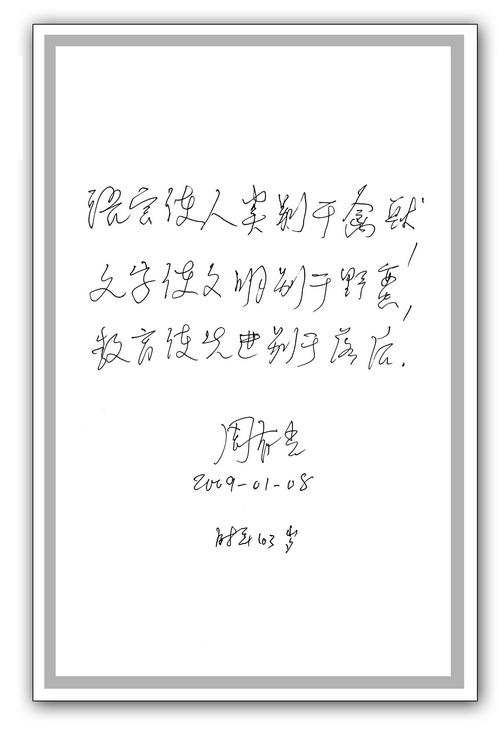 语言使人类别于禽兽，
文字使文明别于野蛮，
教育使先进别于落后.
周有光
2009-01-08
时年103岁